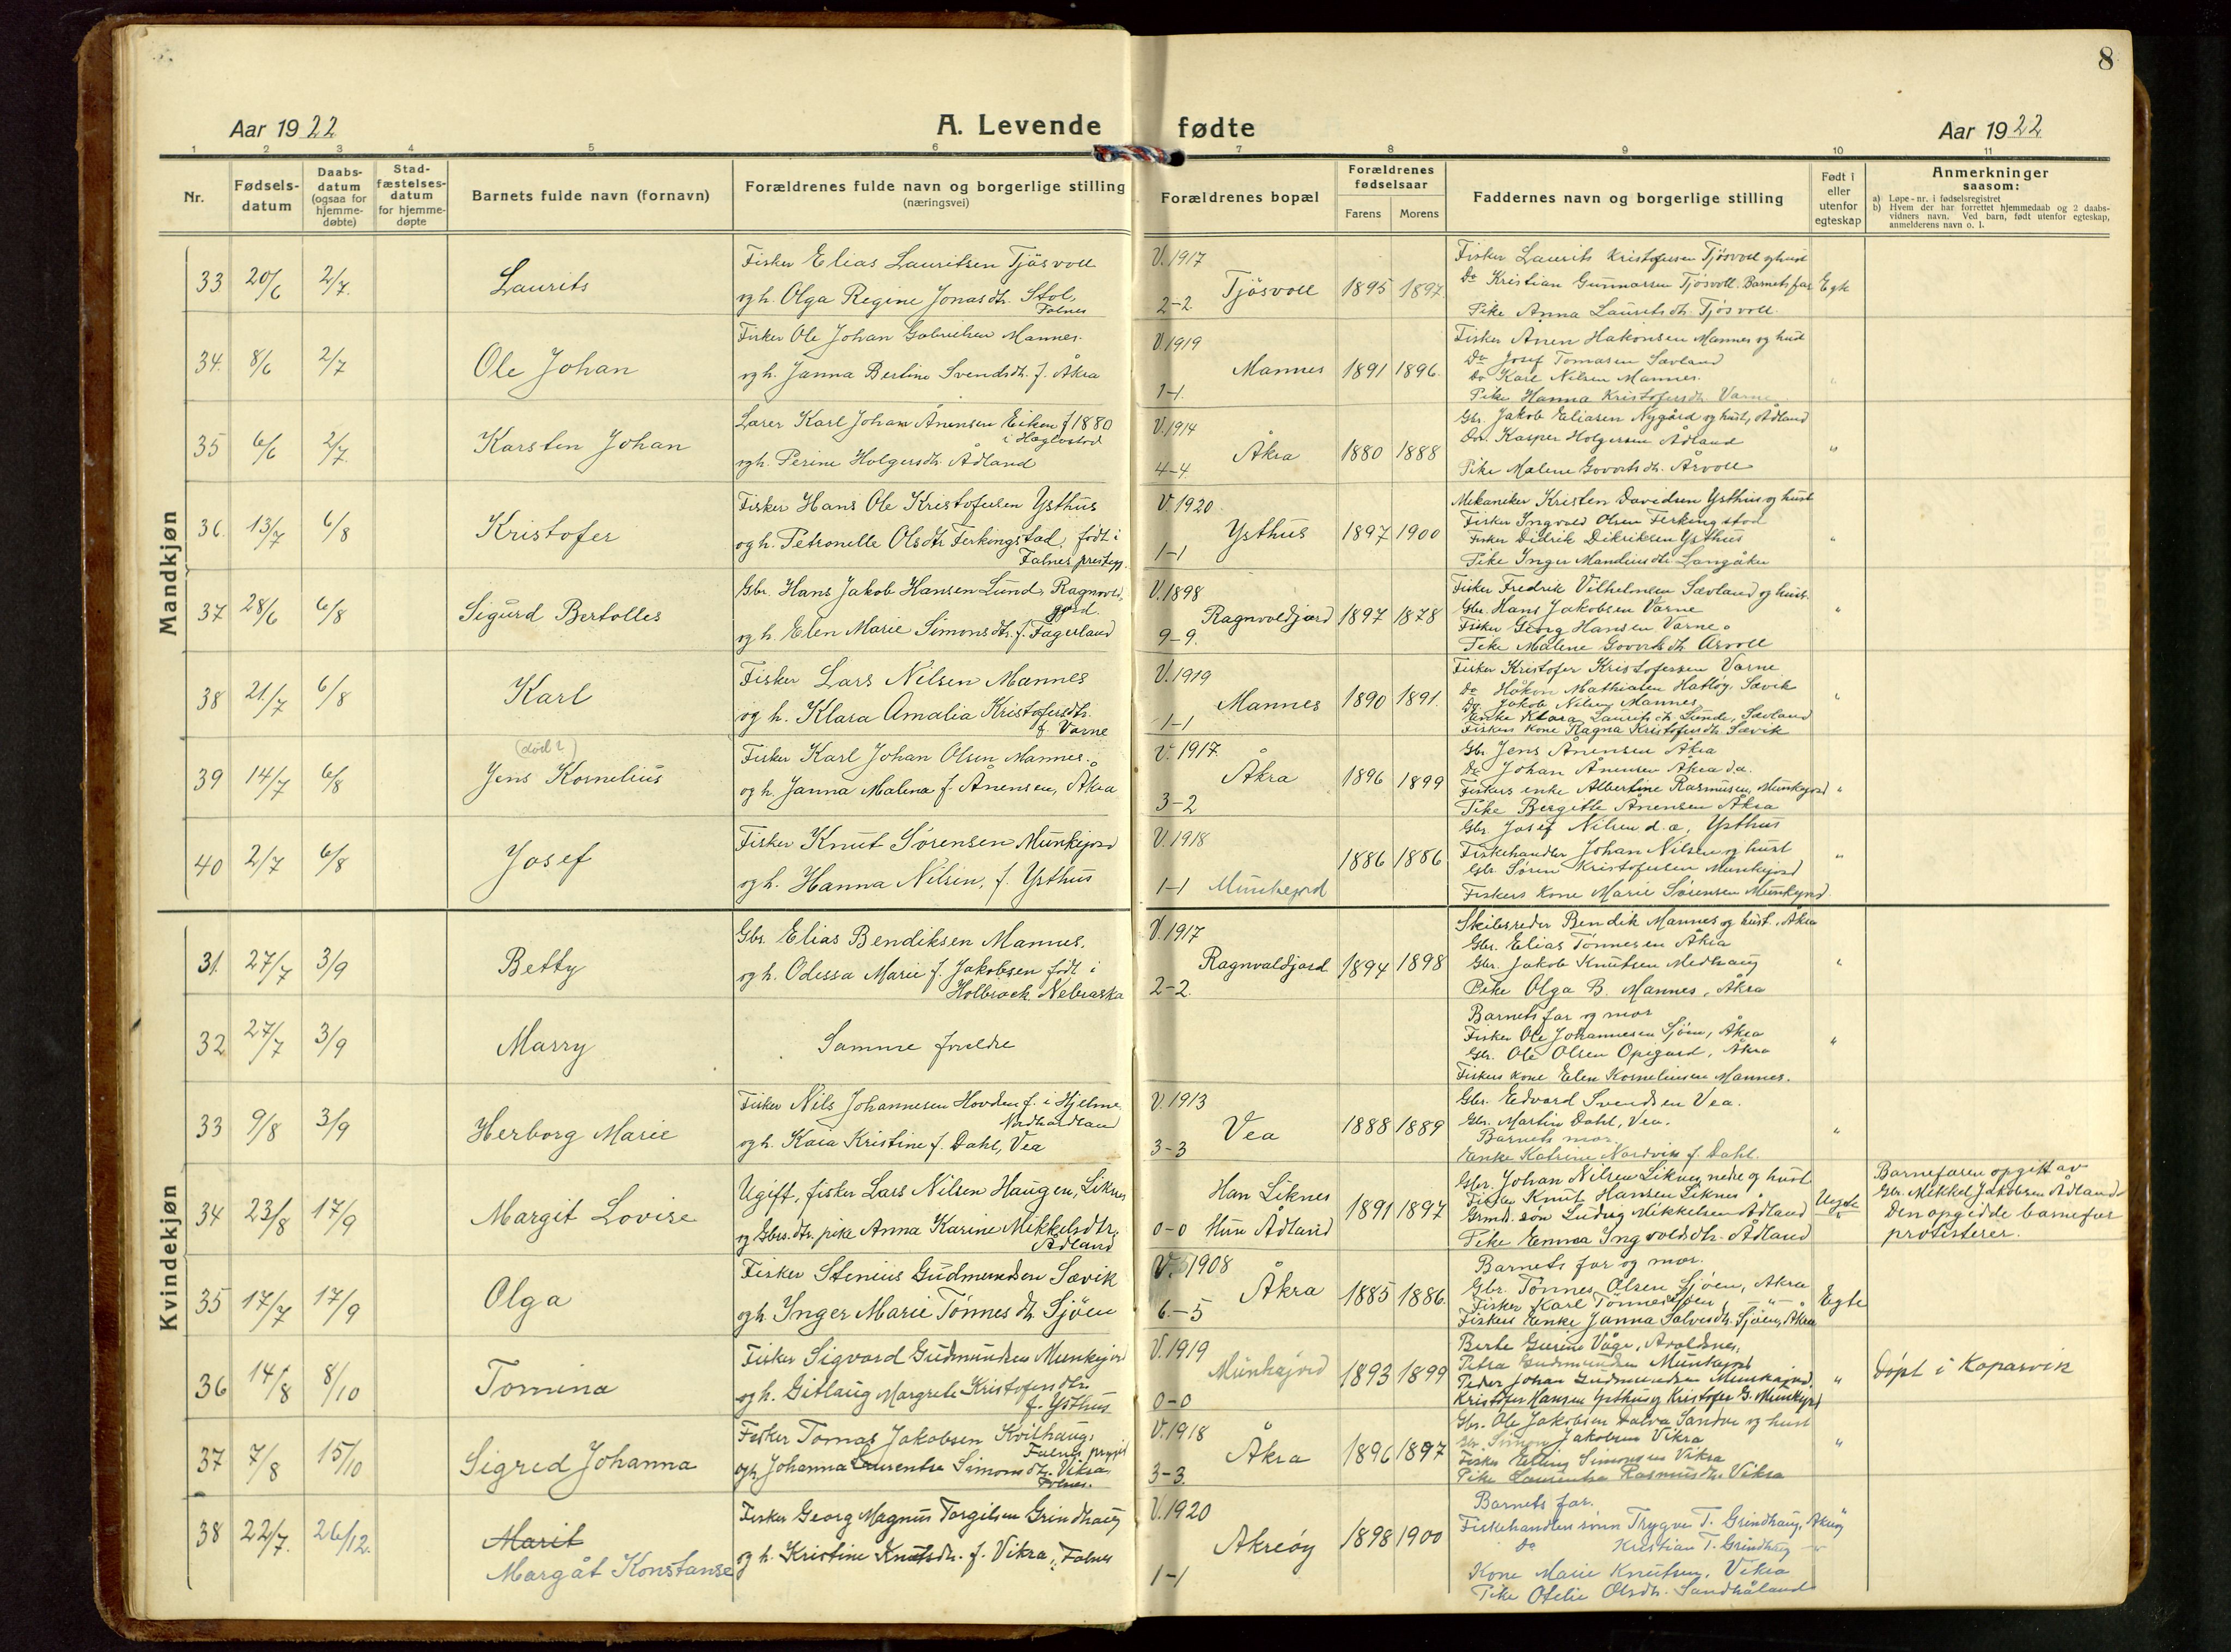 8
Aar 1922
A. Levende fødte
Aar 1922
1 2 3 4 5 6 7 8 9 10 11
Nr.
Fødsels-datum
Daabs-datum (ogsaa for hjemme-døbte)
Stad-fæstelses-datum for hjemme-døpte
Barnets fulde navn (fornavn)
Forældrenes fulde navn og borgerlige stilling
(næringsvei)
Forældrenes bopæl
Forældrenes fødselsaar
Farens Morens
Faddernes navn og borgerlige stilling
Født i eller utenfor egteskap
Anmerkninger
saasom:
a) Løpe-nr. i fødselsregistret
b) Hvem der har forrettet hjemmedaab og 2 daabs-
vidners navn. Ved barn, født utenfor egteskap,
anmelderens navn o. l.
Mandkjøn
33 20/6 2/7. Laurits
Fisker Elias Lauritsen Tjösvoll
og h. Olga Regine Jonasdtr. Stol,
Falnes
V. 1917
2-2. Tjösvoll 1895 1897.
Fisker Laurits Kristofersen Tjösvoll og hust
Do Kristian Gunnarsen Tjösvoll. Barnets far
Pike Anna Lauritsdtr. Tjösvoll.
Egte
34. 8/6 2/7 Ole Johan
Fisker Ole Johan Gabrielsen Mannes.
og h. Janna Bertine Svendsdtr. f. Åkra
V. 1919
1-1. Mannes 1891 1896.
Fisker Ånen Håkonsen Mannes og hust
Do Josef Tomasen Sævland
Do Karl Nilsen Mannes.
Pike Hanna Kristofersdtr. Varne
"
35 6/6 2/7. Karsten Johan
Lærer Karl Johan Ånensen Eiken f 1880
i Hægbostad
og h. Perine Holgersdtr. Ådland
V. 1914
4-4. Åkra 1880 1888
Gbr. Jakob Eliasen Nygård og hust, Ådland
Do. Kasper Holgersen Ådland
Pike Malene Govertsdtr. Årvoll
"
36. 13/7 6/8 Kristofer
Fisker Hans Ole Kristofersen Ysthus
og h. Petronelle Olsdtr Ferkingstad, født i
Falnes prestegj.
V. 1920.
1-1 Ysthus 1897 1900
Mekaniker Kristen Davidsen Ysthus og hust
Fisker Ingvald Olsen Ferkingstad
Fisker Didrik Dikriksen Ysthus
Pike Inger Mandiusdtr Langåker
"
37 28/6 6/8 Sigurd Bertolles
Gbr. Hans Jakob Hansen Lund, Ragnvold-
gjord.
og h. Elen Marie Simonsdtr. f. Fagerland
V. 1898
9-9. Ragnvoldjord 1897 1878
Fisker Fredrik Vilhelmsen Sævland og hust.
Gbr. Hans Jakobsen Varne
Fisker Georg Hansen Varne
Pike Malene Govertsdtr Arvoll
"
38 21/7 6/8 Karl
Fisker Lars Nilsen Mannes
og h. Klara Amalia Kristofersdtr.
f. Varne
V. 1919
1-1 Mannes 1890 1891.
Fisker Kristofer Kristofersen Varne
Do Håkon Mathiasen Hatløy, Sævik
Do Jakob Nilsen Mannes
Enke Klara Lauritsdtr. Lunde, Sævland
Fiskers kone Ragna Kristofersdtr. Sævik
"
39 14/7 6/8 (död?)
Jens Kornelius
Fisker Karl Johan Olsen Mannes.
og h. Janna Malena f. Ånensen, Åkra
V. 1917.
3-2 Åkra 1896 1899
Gbr Jens Ånensen Åkra
Do Johan Ånensen Åkra d.a.
Fiskers enke Albertine Rasmusen, Munkejord
Pike Bergitte Ånensen Åkra
"
40 2/7 6/8 Josef
Fisker Knut Sörensen Munkejord
og h. Hanna Nilsen, f. Ysthus
V. 1918
1-1 Munkejord 1886 1886
Gbr Josef Nilsen d. a, Ysthus
Fiskehandler Johan Nilsen og hust
Gbr Sören Kristofersen Munkejord
Fiskers kone Marie Sörensen Munkejord.
"
Kvindekjøn
31. 27/7 3/9 Betty
Gbr. Elias Bendiksen Mannes.
og h. Odessa Marie f. Jakobsen født i
Holbrock Nebraska
V. 1917
2-2. Ragnvaldjord 1894 1898
Skibsreder Bendik Mannes og hust. Åkra
Gbr. Elias Tönnesen Åkra
Gbr. Jakob Knutsen Medhaug
Pike Olga B. Mannes, Åkra
"
32 27/7 3/9 Marry
Samme foreldre
Barnets far og mor
Fisker Ole Johannesen Sjöen, Åkra
Gbr. Ole Olsen Opigard, Åkra
Fiskers kone Elen Korneliusen Mannes.
"
33 9/8 3/9 Herborg Marie
Fisker Nils Johannesen Hovden f. i Hjelme
Nordhordland
og h. Kaia Kristine f. Dahl, Vea
V. 1913
3-3 Vea 1888 1889
Gbr. Edvard Svendsen Vea.
Gbr. Martin Dahl, Vea.
Barnets mor.
Enke Katrine Nordvik f. Dahl.
"
34 23/8 17/9 Margit Lovise
Ugift, fisker Lars Nilsen Haugen, Liknes
og Gbrs. dtr. pike Anna Karine Mikkelsdtr.
Ådland
Han Liknes
0-0 Hun Ådland 1891 1897
Gbr. Johan Nilsen Liknes nedre og hust
Fisker Knut Hansen Liknes
Grmd. søn Ludvig Mikkelsen Ådland
Pike Emma Ingvoldsdtr. Ådland
Uegte
Barnefaren opgitt av
Gbr. Mikkel Jakobsen Ådland
Den opgidde barnefar
protesterer.
35 17/7 17/9 Olga
Fisker Stenius Gudmundsen Sævik
og h. Inger Marie Tönnesdtr. Sjöen
V. 1908
6-5 Åkra 1885 1886.
Barnets far og mor.
Gbr. Tönnes Olsen Sjöen, Akra
Fisker Karl Tönnes Sjöen, - " -
Fiskers Enke Janna Salvesdtr. Sjöen, Åkra
Egte
36 14/8 8/10 Tomina
Fisker Sigvard Gudmundsen Munkejord
og h. Gitlaug Margrete Kristofersdtr.
f. Ysthus
V. 1919
0-0 Munkajord 1893 1899
Berte Gurine Våge, Avaldsnes,
Petra Gudmundsen Munkejord
Peder Johan Gudmundsen Munkajord.
Kristofer Hansen Ysthus og Kristofer G. Munkejord
"
Döpt i Kopervik
37 7/8 15/10 Sigred Johanna
Fisker Tomas Jakobsen Kvilhaug,
Falnes prgjd
og h. Johanna Laurentse Simonsdtr. Vikra
Falnes.
V. 1918
3-3. Åkra 1896 1897
Gbr. Ole Jakobsen Dalva Sandve og hust
Gbr. Simon Jakobsen Vikra
Fisker Elling Simonsen Vikra
Pike Laurentse Rasmusdtr. Vikra
"
38 22/7. 26/12. Marit
Margåt Konstanse
Fisker Georg Magnus Torgilsen Grindhaug
og h. Kristine Knutsdtr. f. Vikra, Falnes
V. 1920
1-1 Akreöy 1898 1900
Barnets far.
Fiskehandlers sønn Trygve T. Grindhaug, Akreöy
Do Kristian T. Grindhaug - " -
Kone Marie Knutsen, Vikra
Pike Otelie Olsdtr. Sandhåland
"